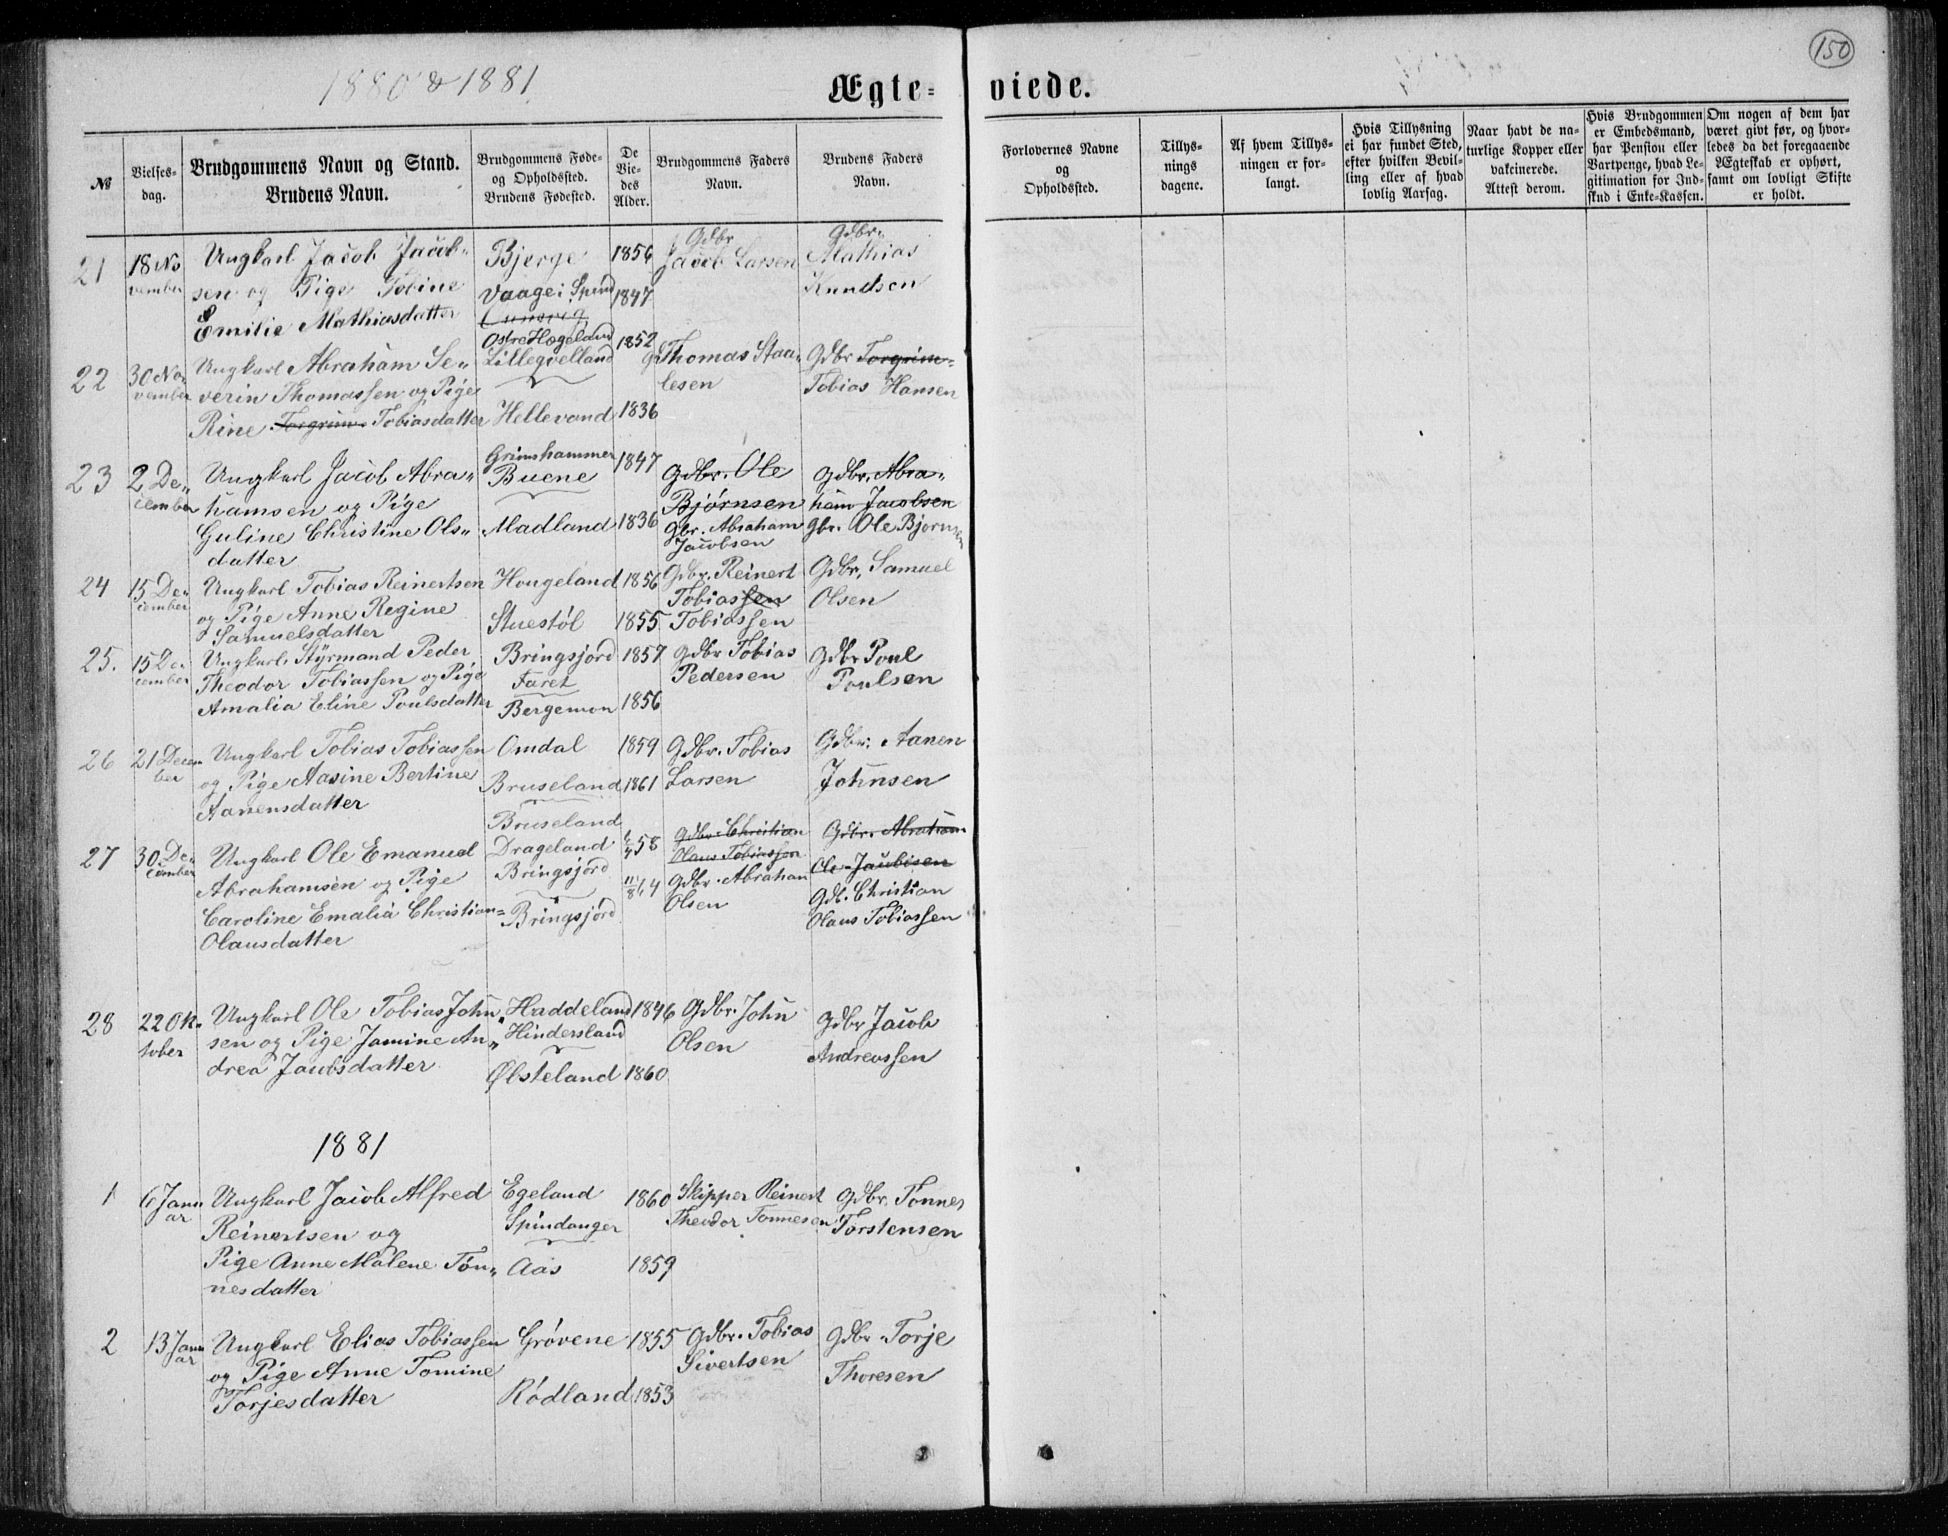 150
1880 & 1881
Ægte- viede.
№
Vielses-
dag.
Brudgommens Navn og Stand.
Brudens Navn.
Brudgommens Føde-
og Opholdssted.
Brudens Fødested.
De
Vie-
des
Alder.
Brudgommens Faders
Navn.
Brudens Faders
Navn.
Forlovernes Navne
og
Opholdssted.
Tillys-
nings
dagene.
Af hvem Tillys-
ningen er for-
langt.
Hvis Tillysning
ei har fundet Sted,
efter hvilken Bevil-
ling eller af hvad
lovlig Aarsag.
Naar havt de na-
turlige Kopper eller
vakcinerede.
Attest derom.
Hvis Brudgommen
er Embedsmand,
har Pension eller
Vartpenge, hvad Le-
gitimation for Ind-
skud i Enke-Kassen.
Om nogen af dem har
været givt før, og hvor-
ledes da det foregaaende
Ægteskab er ophørt,
samt om lovligt Skifte
er holdt.
21
18 No
vember
Ungkarl Jacob Jacob-
sen og Pige Tobine
Emilie Mathiasdatter
Bjerge
Vaage i Spind
1856
1847
Gdbr
Jacob Larsen
Gdbr.
Mathias
Knudsen
22
30 No-
vember
Ungkarl Abraham Se-
verin Thomassen og Pige
Rine Torgrim- Tobiasdatter
Ostre Høgeland
Lillegvelland
Hellevand
1852
1836
Thomas Staa-
lesen
Gdbr Torgrim-
Tobias Hansen
23
2 De-
cember
Ungkarl Jacob Abra-
hamsen og Pige
Guline Christine Ols-
datter
Grimshammer
Buene
Madland
1847
1836
Gdbr. Ole
Bjørnsen
Gbr. Abraham
Jacobsen
Gdbr. Abra-
ham Jacobsen
Gbr. Ole Bjørnsen
24
15 De-
cember
Ungkarl Tobias Reinertsen
og Pige Anne Regine
Samuelsdatter
Hougeland
Stuestøl
1856
1855
Gdbr. Reinert
Tobiassen
Tobiassen
Gdbr. Samuel
Olsen
25.
15 De
cember
Ungkarl Styrmand Peder
Theodor Tobiassen og Pige
Amalia Eline Poulsdatter
Bringsjord
Faret
Bergemon
1857
1856
Gdbr Tobias
Pedersen
Gdbr Poul
Poulsen
26
21 Decem
ber
Ungkarl Tobias Tobiassen
og Pige Aasine Bertine
Aanensdatter
Omdal
Bruseland
1859
1861
Gdbr. Tobias
Larsen
Gdbr. Aanen
Johnsen
27
30 De-
cember
Ungkarl Ole Emanuel
Abrahamsen og Pige
Caroline Emalia Christian-
Olausdatter
Bruseland
Drageland
Bringsjord
Bringsjord
58
11/8 64
Gdbr Christian
Olaus Tobiassen
Gdbr. Abraham
Olsen
Gdbr. Abraham
Ole Jacobsen
Gdb. Christian
Olaus Tobiassen
28
22 Ok-
tober
Ungkarl Ole Tobias John-
sen og Pige Jamine An-
drea Jacobsdatter
Haddeland
Hindersland
Øbsteland
1846
1860
Gdbr. John
Olsen
Gdbr Jacob
Andreassen
1881
1
6 Janu
ar
Ungkarl Jacob Alfred
Reinertsen og
Pige Anne Malene Tøn-
nesdatter
Egeland
Spindanger
Aas
1860
1859
Skipper Reinert
Theodor Tønnesen
Gdbr. Tønnes
Torstensen
2
13 Janu
ar
Ungkarl Elias Tobiassen
og Pige Anne Tomine
Torjesdatter
Grövene
Rødland
1855
1853
Gdbr. Tobias
Sivertsen
Gdbr Torje
Thoresen